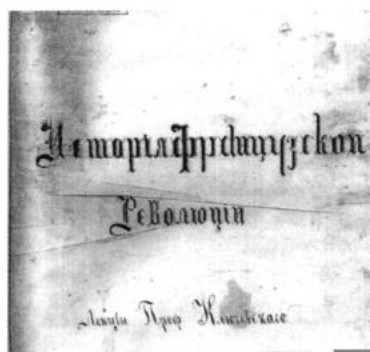 Исторія французской
Революціи
Лекціи Проф. Ключевскаго